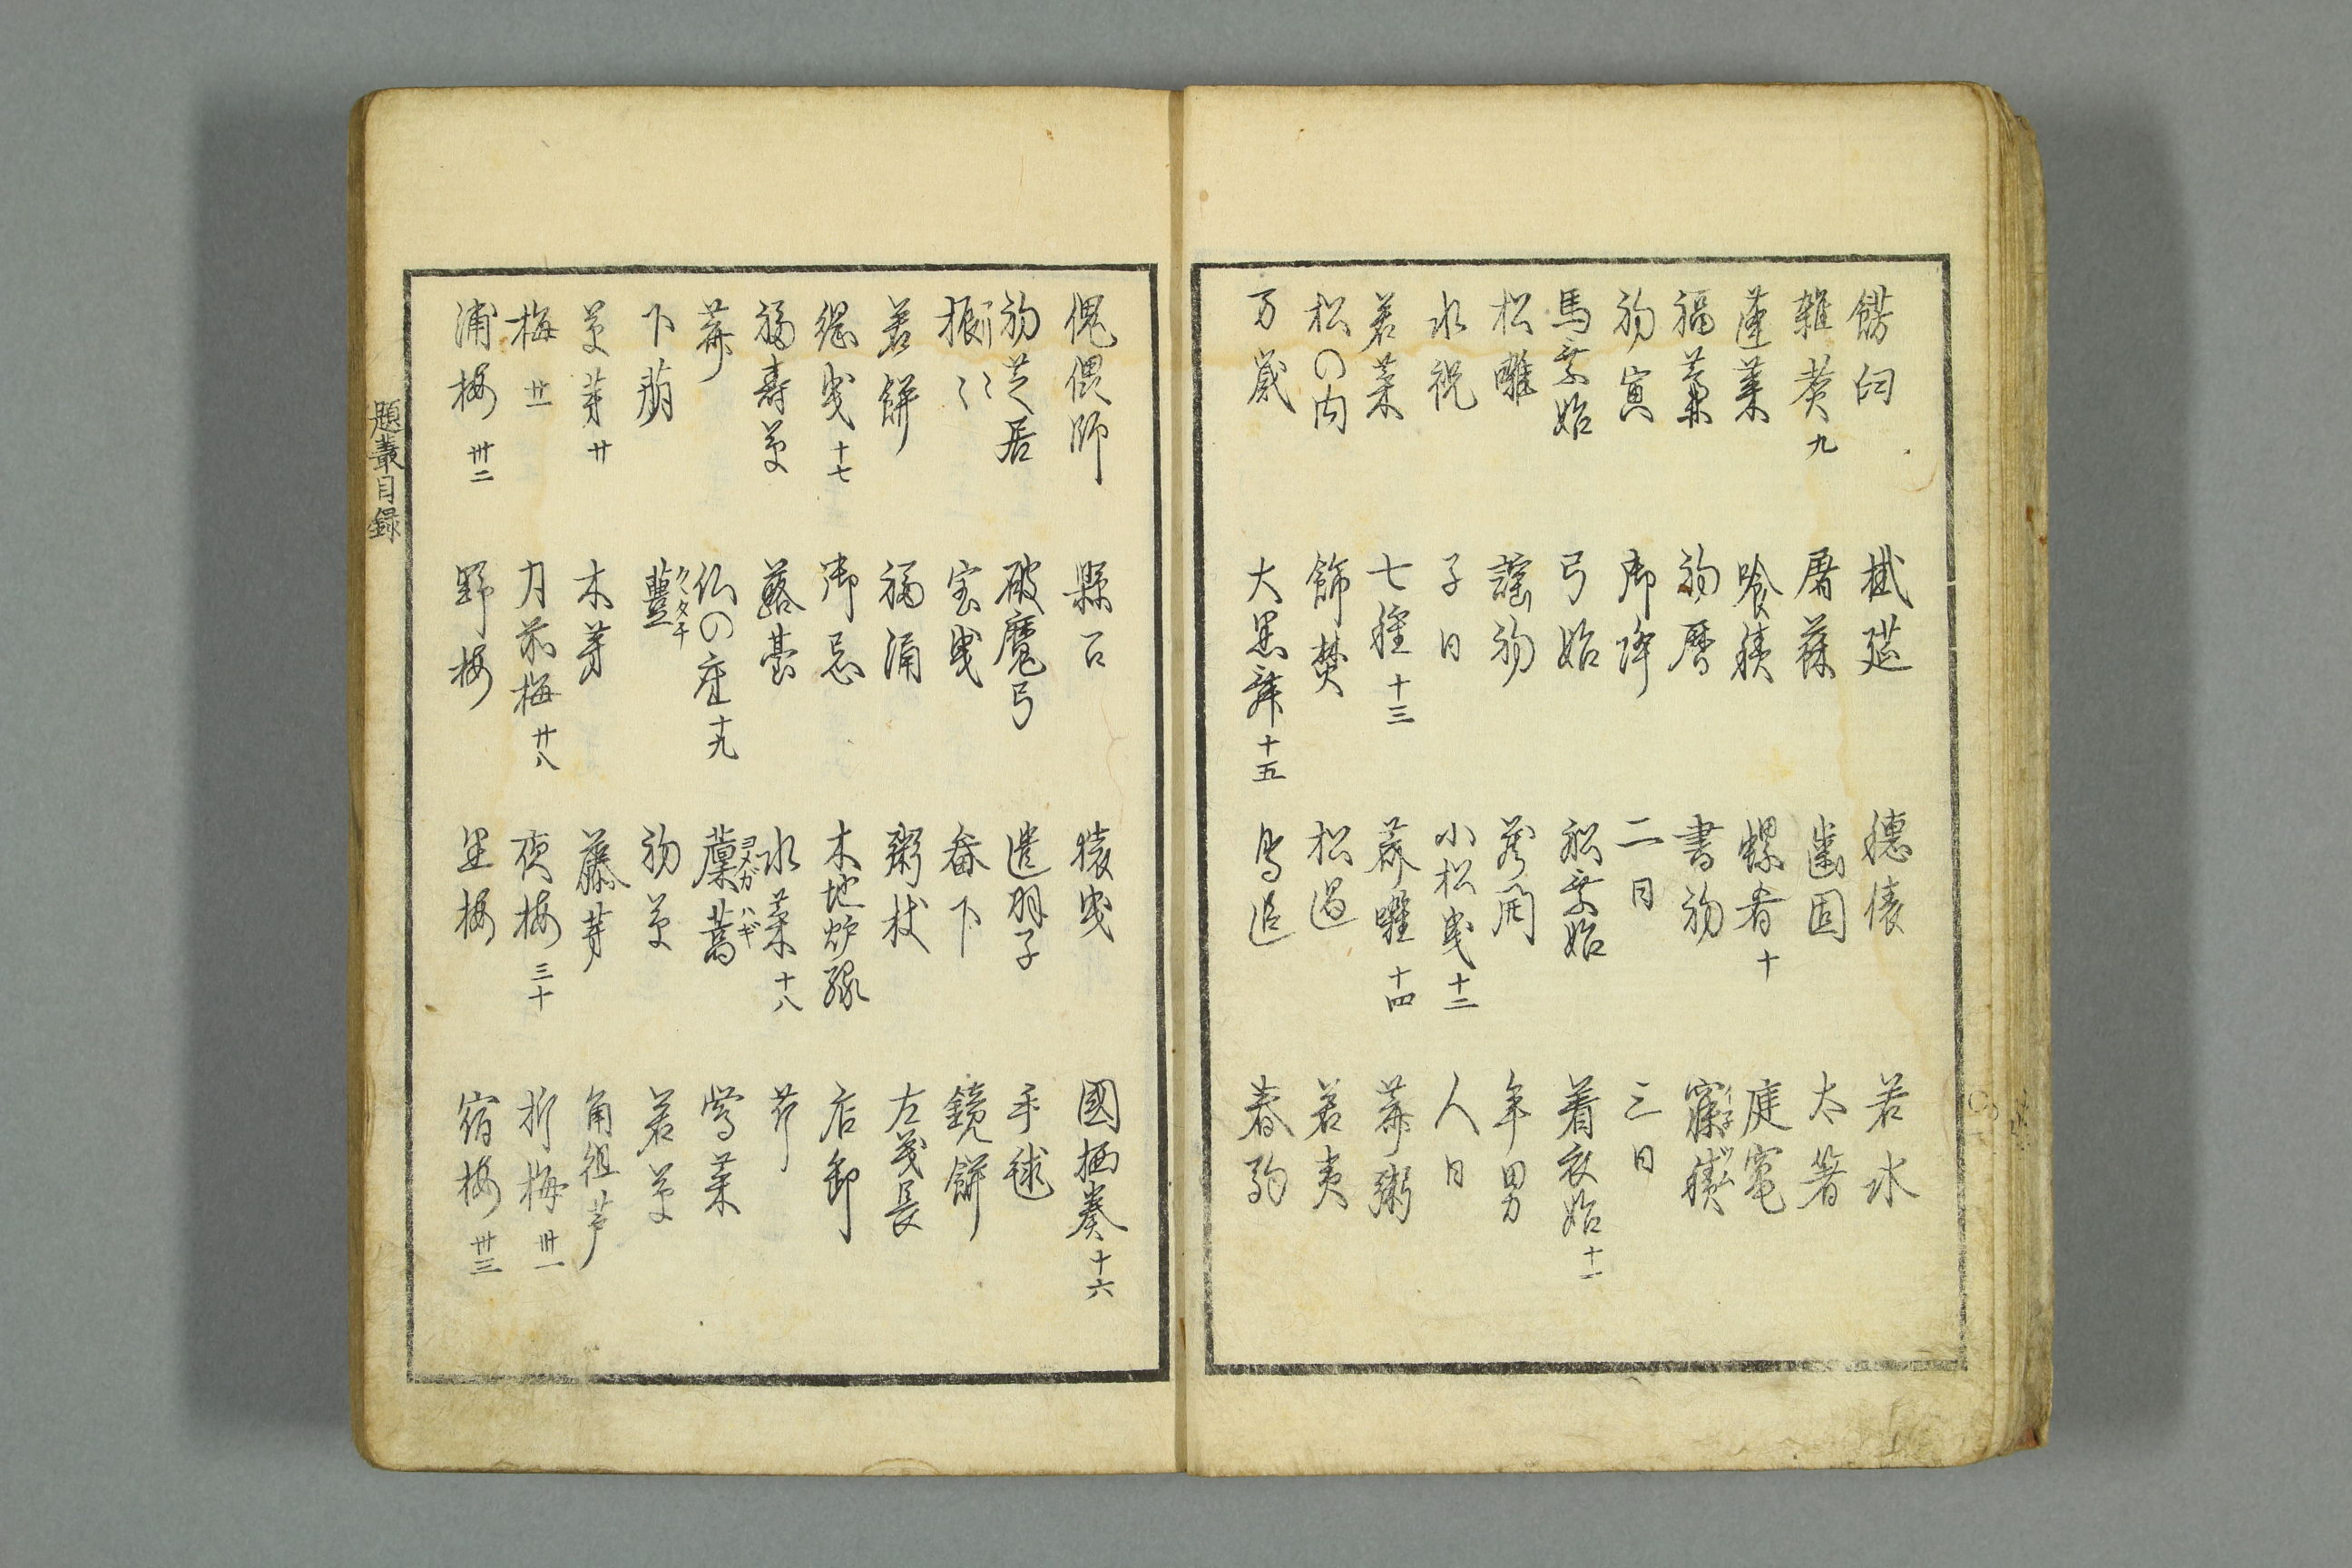 餝臼 掛莚 穂俵 若水
雑煮九 屠蘓 歯固 太箸
蓬莱 喰積 螺肴十 庭竃
福藁 初暦 書初 寐積
初寅 御降 二日 三日
馬乗始 弓始 船乗始 着衣始十一
松囃 謡初 蔵開 年男
水祝 子日 小松曳十二 人日
若菜 七種十三 薺囃十四 薺粥
松の内 飾焚 松過 若夷
万歳 大黒舞十五 鳥追 春駒
傀儡師 縣召 猿曳 國栖奏十六
初芝居 破魔弓 遣羽子 手毬
振々 宝曳 畚下 鏡餅
若餅 福涌 粥杖 左義長
縄曳十七 御忌 木地炉縁 店卸
福寿草 蕗薹 水菜十八 芹
薺 仏の座十九 ヨメガハギ 鶯菜
下萠 クヽタチ 初草 若草
草芽廿 木芽 藤芽 角組芦
梅廿一 月前梅廿八 夜梅三十 折梅卅一
浦梅卅二 野梅 里梅 宿梅卅三
題叢目録